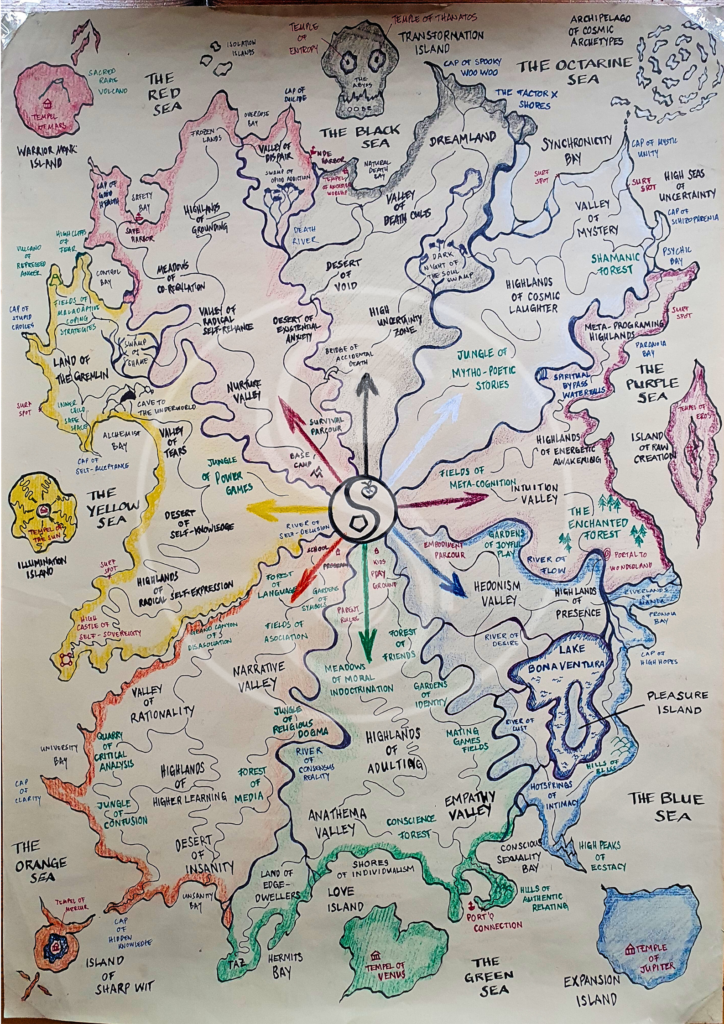 TEMPLE
OF
ENTROPY
TEMPLE OF THANATOS
TRANSFORMATION
ISLAND
THE
ABYSS
ARCHIPELAGO
OF COSMIC
ARCHETYPES
SACRED
RAGE
VOLCANO
ISOLATION
ISLANDS
THE
RED
SEA
TEMPEL
OF MARS
WARRIOR MONK
ISLAND
THE BLACK
SEA
CAP OF SPOOKY
WOO WOO
THE OCTARINE
SEA
THE FACTOR X
SHORES
DREAMLAND
FROZEN
LANDS
BAY
CAP OF
SUICIDE
VALLEY OF
DISPAIR
SWAMP OF
OPIOD ADDICTION
HARBOR
NATURAL
DEATH BAY
VALLEY
OF
DEATH CULTS
DEATH
RIVER
SYNCHRONICITY
BAY
SURF
SPOT
CAP OF MYSTIC
UNITY
SURF
SPOT
HIGH SEAS
OF
UNCERTAINTY
CAP OF
SCHIZOPHRENIA
VALLEY
OF
MYSTERY
SHAMANIC
FOREST
PSYCHIC
BAY
CAP OF
SAFETY
BAY
SAFE
HARBOR
HIGHLANDS
OF
GROUNDING
HIGH CLIFFS
OF
FEAR
VULCANO
OF
REPRESSED
ANGER
CONTROL
BAY
MEADOWS
OF
CO-REGULATION
DESERT
OF
VOID
DARK
NIGHT OF
THE SOUL
SWAMP
HIGHLANDS
OF COSMIC
LAUGHTER
SURF
SPOT
META-PROGRAMING
HIGHLANDS
PARANOIA
BAY
CAP OF
STUPID
CHOICES
FIELDS OF
MALADAPTIVE
COPING
STRATEGIES
SWAMP
OF
SHAME
LAND OF
THE GREMLIN
VALLEY OF
RADICAL
SELF-RELIANCE
DESERT OF
EXISTENTIAL
ANXIETY
HIGH
UNCERTAINTY
ZONE
BRIDGE OF
ACCIDENTAL
DEATH
JUNGLE
OF
MYTHO-POETIC
STORIES
SPIRITUAL
BYPASS
WATERFALLS
THE
PURPLE
SEA
TEMPLE OF
EROS
ISLAND
OF RAW
CREATION
SURF
SPOT
INNER
CHILD
SAFE
SPACE
CAVE TO
THE UNDERWORLD
ALCHEMIST
BAY
CAP OF
SELF-ACCEPTANCE
VALLEY
OF
TEARS
NURTURE
VALLEY
SURVIVAL
PARCOUR
BASE
CAMP
HIGHLANDS
OF ENERGETIC
AWAKENING
FIELDS OF
META-COGNITION
INTUITION
VALLEY
JUNGLE
OF POWER
GAMES
THE
YELLOW
SEA
TEMPEL OF
THE SUN
ILLUMINATION
ISLAND
DESERT
OF
SELF-KNOWLEDGE
RIVER OF
SELF-DELUSION
THE
ENCHANTED
FOREST
PORTAL TO
WONDERLAND
EMBODIMENT
PARCOUR
GARDENS
OF JOYFUL
PLAY
RIVER OF
FLOW
SURF
SPOT
HIGHLANDS
OF
RADICAL SELF EXPRESSION
SCHOOL
PROGRAM
KIDS
PLAY
GROUND
FOREST
OF
LANGUAGE
GARDENS
OF
SYMBOLS
HEDONISM
VALLEY
HIGHLANDS
OF
PRESENCE
PRONOIA
BAY
CAP OF
HIGH HOPES
HIGH
CASTLE OF
GRAND CANYON
OF
DISASOCIATION
FIELDS OF
ASOCIATION
FOREST
OF
FRIENDS
RIVER OF
DESIRE
LAKE
BONAVENTURA
PLEASURE
ISLAND
MEADOWS
OF MORAL
INDOCTRINATION
GARDENS
OF
IDENTITY
NARRATIVE
VALLEY
VALLEY
OF
RATIONALITY
JUNGLE
OF
RELIGIOUS
DOGMA
RIVER
OF
CONSENSUS
REALITY
HIGHLANDS
OF
ADULTING
MATING
GAMES
FIELDS
RIVER OF
LUST
HILLS OF
BLISS
UNIVERSITY
BAY
QUARRY
OF
CRITICAL
ANALYSIS
CAP
OF
CLARITY
HIGHLANDS
OF
HIGHER LEARNING
FOREST
OF
MEDIA
JUNGLE
OF
CONFUSION
HOTSPRINGS
OF
INTIMACY
THE BLUE
SEA
EMPATHY
VALLEY
ANATHEMA
VALLEY
CONSCIENCE
FOREST
THE
ORANGE
SEA
DESERT
OF
INSANITY
CONSCIOUS
SEXUALITY
BAY
HIGH PEAKS
OF
ECSTACY
SHORES
OF INDIVIDUALISM
LAND
OF
EDGE-
DWELLERS
LOVE
ISLAND
HILLS OF
AUTHENTIC
RELATING
TEMPEL OF
MERCUR
CAP
OF
HIDDEN
KNOWLEDGE
UNSANITY
BAY
CONNECTION
ISLAND
OF
SHARP WIT
TAZ
HERMITS
BAY
TEMPEL OF
VENUS
THE
GREEN
SEA
TEMPLE
OF
JUPITER
EXPANSION
ISLAND